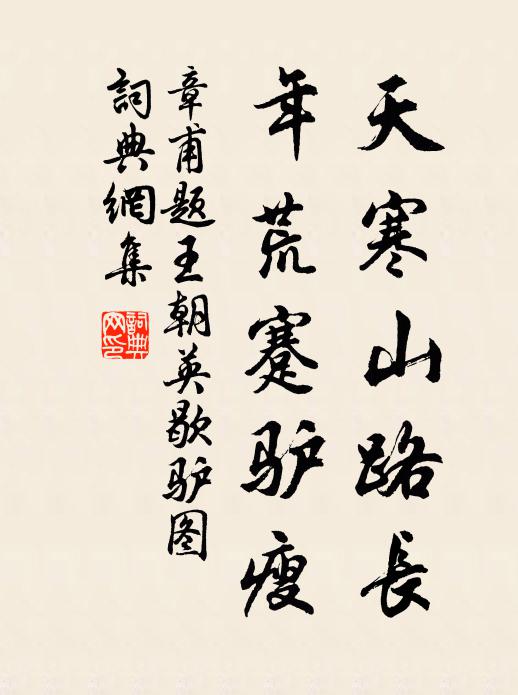 天寒山路長
年荒蹇驴瘦
章甫题王朝英歇驴图
詞典網集
詞典網印